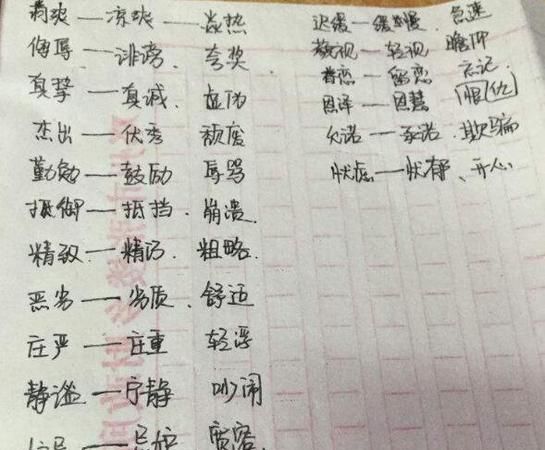 凉爽——炎热
侮辱——诽谤、夸奖
真挚——真诚、虚伪
杰出——优秀 颓废
勤勉——鼓励 辱骂
抵御——抵挡、崩溃
精致——精巧、粗略
恶劣——劣质、舒适
庄严——庄重 轻浮
静谧——宁静 吵闹
宽容
迟缓——缓慢、急速
藐视——轻视 瞻仰
眷恋——留恋 忘记
恩泽——恩惠
允诺——承诺、欺骗
忧虑——忧郁、开心